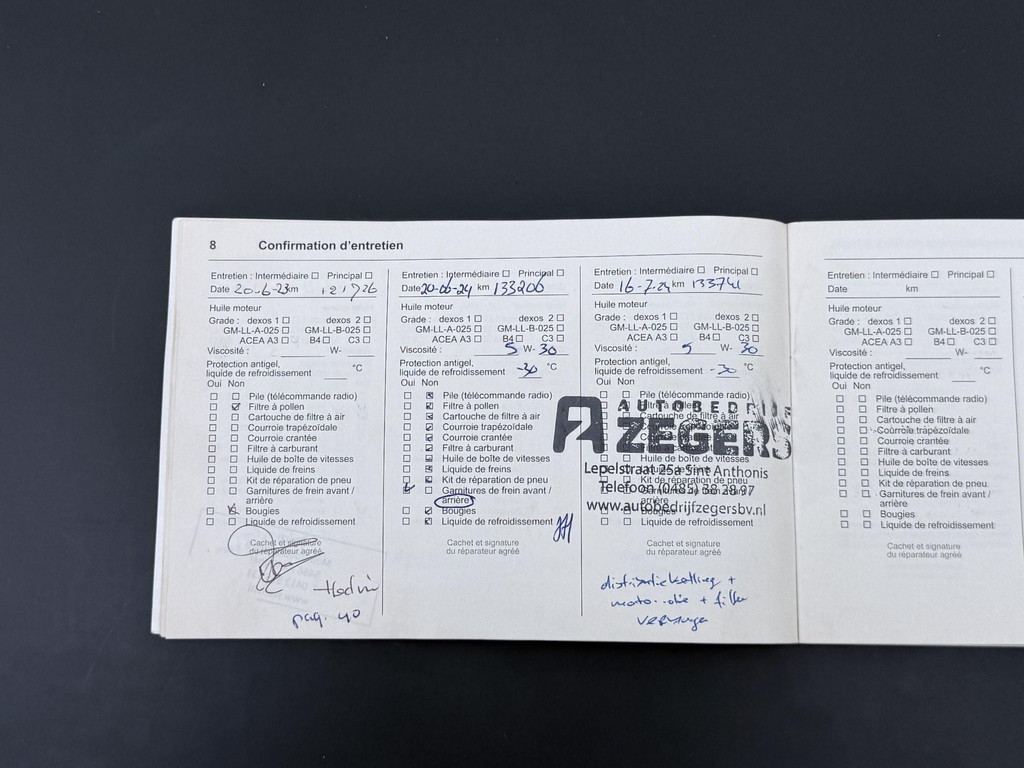 8 Confirmation d'entretien
Entretien : Intermédiaire ☐ Principal ☐
Date 20-6-23 km 121726
Huile moteur
Grade : dexos 1 ☐ dexos 2 ☐
GM-LL-A-025 ☐ GM-LL-B-025 ☐
ACEA A3 ☐ B4 ☐ C3 ☐
Viscosité : W-
Protection antigel,
liquide de refroidissement °C
Oui Non
Pile (télécommande radio)
Filtre à pollen
Cartouche de filtre à air
Courroie trapézoïdale
Courroie crantée
Filtre à carburant
Huile de boîte de vitesses
Liquide de freins
Kit de réparation de pneu
Garnitures de frein avant /
arrière
Bougies
Liquide de refroidissement
Cachet et signature
du réparateur agréé
pag. 40
Entretien : Intermédiaire ☐ Principal ☐
Date 20-06-24 km 133206
Huile moteur
Grade : dexos 1 ☐ dexos 2 ☐
GM-LL-A-025 ☐ GM-LL-B-025 ☐
ACEA A3 ☐ B4 ☐ C3 ☐
Viscosité : 5 W- 30
Protection antigel,
liquide de refroidissement -30 °C
Oui Non
Pile (télécommande radio)
Filtre à pollen
Cartouche de filtre à air
Courroie trapézoïdale
Courroie crantée
Filtre à carburant
Huile de boîte de vitesses
Liquide de freins
Kit de réparation de pneu
Garnitures de frein avant /
arrière
Bougies
Liquide de refroidissement
Cachet et signature
du réparateur agréé
Entretien : Intermédiaire ☐ Principal ☐
Date 16-7-24 km 133741
Huile moteur
Grade : dexos 1 ☐ dexos 2 ☐
GM-LL-A-025 ☐ GM-LL-B-025 ☐
ACEA A3 ☐ B4 ☐ C3 ☐
Viscosité : 5 W- 30
Protection antigel,
liquide de refroidissement -30 °C
Oui Non
Pile (télécommande radio)
Filtre à pollen
Cartouche de filtre à air
Huile de boîte de vitesses
Kit de réparation de pneu
arrière
Bougies
Liquide de refroidissement
AUTOBEDRIJF
ZEGERS
Lepelstraat 25a Sint Anthonis
Telefoon (0485) 38 28 97
www.autobedrijfzegersbv.nl
Cachet et signature
du réparateur agréé
+ filter
Entretien : Intermédiaire ☐ Principal ☐
Date km
Huile moteur
Grade : dexos 1 ☐ dexos 2 ☐
GM-LL-A-025 ☐ GM-LL-B-025 ☐
ACEA A3 ☐ B4 ☐ C3 ☐
Viscosité : W-
Protection antigel,
liquide de refroidissement °C
Oui Non
Pile (télécommande radio)
Filtre à pollen
Cartouche de filtre à air
Courroie trapézoïdale
Courroie crantée
Filtre à carburant
Huile de boîte de vitesses
Liquide de freins
Kit de réparation de pneu
Garnitures de frein avant /
arrière
Bougies
Liquide de refroidissement
Cachet et signature
du réparateur agréé